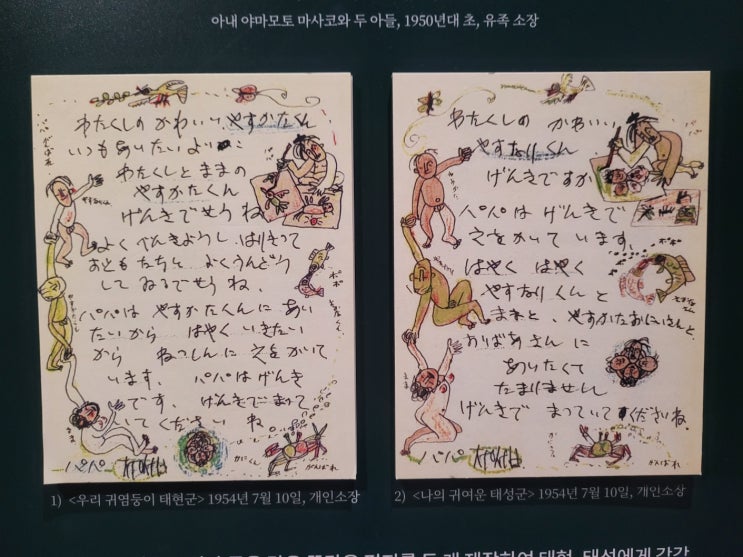 아내 야마모토 마사코와 두 아들, 1950년대 초, 유족 소장
わたくしの かわいい やすかたくん
いつもあいたいよ
わたくしとままの
やすかたくん
げんきでせうね
よく べんきようし はりきって
おともだちと よくうんどう
して ゐるでせうね、
パパは やすかたくんに あい
たいから はやく いきたい
から ねっしんに えをかいて
います、 パパはげんき
です、 げんきでまって
いて ください ね
パパ
かにくん
がんばれ
1) <우리 귀염둥이 태현군> 1954년 7월 10일, 개인소장
わたくしの かわいい
やすなりくん
げんきですか
パパは げんきで
えをかいて います、
はやく はやく
やすなりくんと
ままと、やすかたおにいさんと
おばあさんに
あいたくて
たまりません
げんきで まっていてくださいね
パパ
がんばれ
2) <나의 귀여운 태성군> 1954년 7월 10일, 개인소장